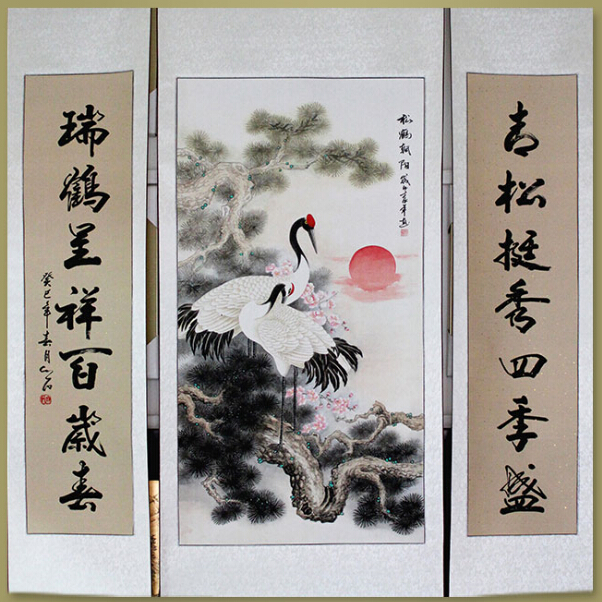 青松挺秀四季盛
松鶴朝陽
瑞鶴呈祥百歲春
癸巳年春月